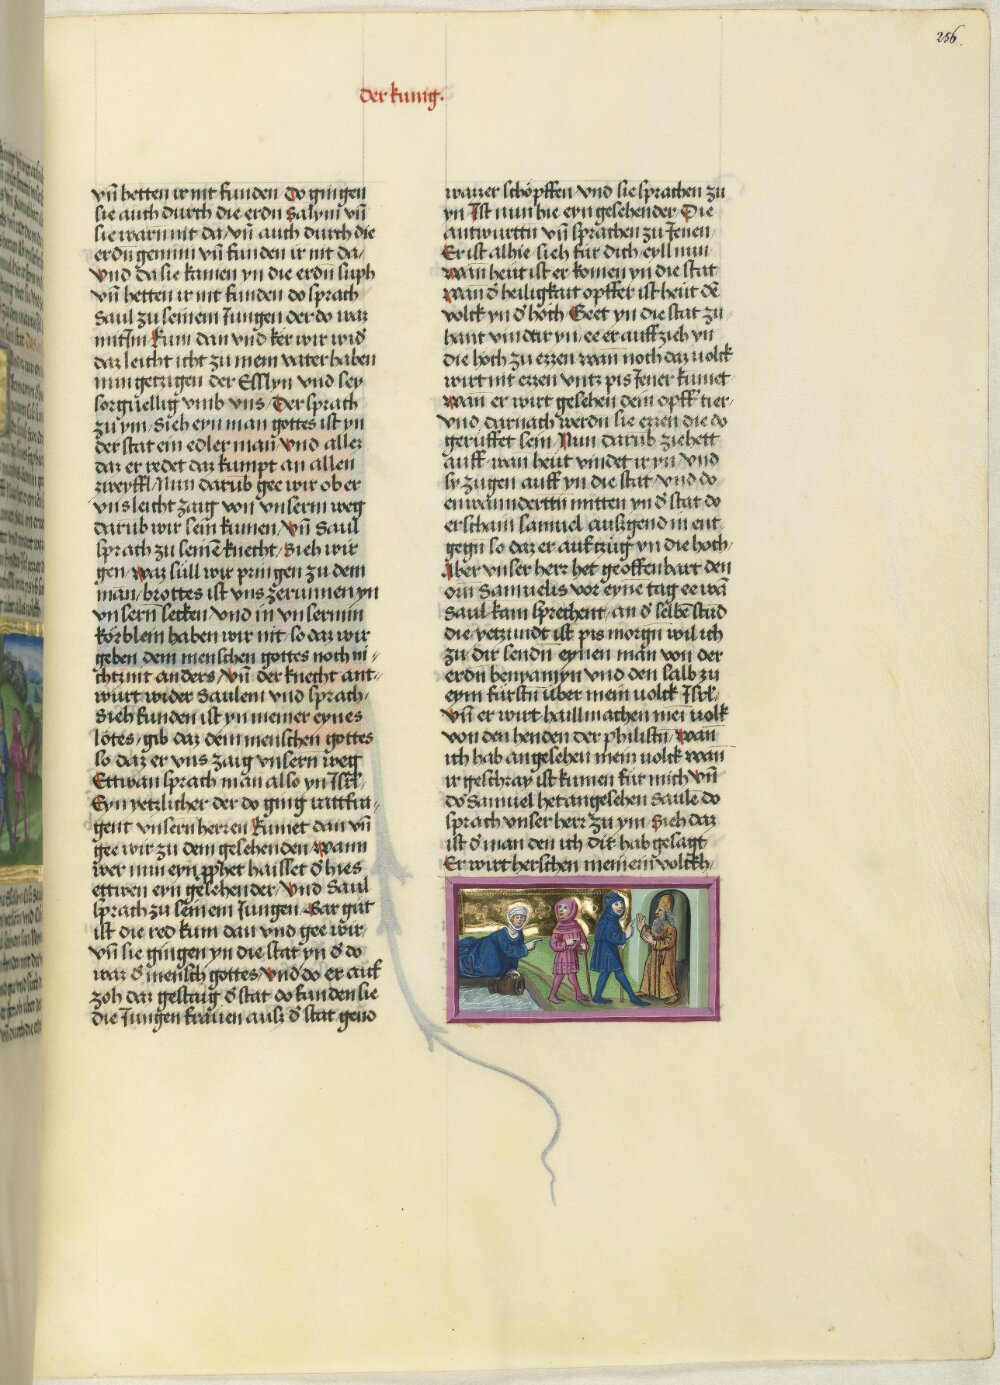 256.
der kunig.
vn̄ hetten ir nit funden Do gingen
sie auch durch die erdn Salym vn̄
sie warn nit da/ vn̄ auch durch die
erdn gemini vn̄ funden ir nit da/
Vnd da sie kamen yn die erdn suph
vn̄ hetten ir nit funden do sprach
Saul zu seinem Jungen der do waz
mit Jm Kum dan vnd ker wir wid̄
daz leicht icht zu mein vater haben
mun getzigen der Esslyn vnd sey
sorguellig vmb vns/ Der sprach
zu ym/ Sieh eyn man gottes ist yn
der stat ein edler man̄ Vnd allez
daz er redet daz kumpt an allen
zweyffl/ Nun darub gee wir ob er
vns leicht zaig von vnserm weg
darub wir sein kumen/ Vn̄ Saul
sprach zu seinē knecht/ Sieh wir
gen/ Waz süll wir pringen zu dem
man/ brottes ist vns zerunnen yn
vnsern secken/ vnd in vnsermin
körblein haben wir nit so daz wir
geben dem menschen gottes noch ni/
chtznit anders/ Vn̄ der knecht ant/
wurt wider Saulem vnd sprach/
Sieh funden ist yn meiner eynes
lötes/ gib daz dem menschen gottes
so daz er vns zaig vnsern weg
Ettwan sprach man also yn Isrl/
Eyn yetzlicher der do ging rattfra/
gent vnsern herren Kumet dan vn̄
gee wir zu dem gesehenden Wann
wer nun eyn pphet haisset d̄ hies
ettwen eyn gesehender/ Vnd Saul
sprach zu seinem Jungen Gar gut
ist die red kum dan vnd gee wir/
vn̄ sie gingen yn die stat yn d̄ do
waz d̄ mensch gottes Vnd do er auf
zoh daz gestaig d̄ stat do funden sie
die Jungen frauen ausz d̄ stat geno
wazzer schöpffen vnd sie sprachen zu
yn Ist nun hie eyn gesehender Die
antwurttn vn̄ sprachen zu Jenen/
Er ist alhie sieh für dich/ eyll nun
Wan heut ist er komen yn die stat
Wan d̄ heiligkait opffer ist heut dē
volck yn d̄ höch Geet yn die stat zu/
hant vindt ir yn/ ee er auff zieh yn
die höch zu ezzen wan noch daz uolck
wirt nit ezzen vntz pis Jener kumet
Wan er wirt gesehen dem opff tier/
vnd darnach werdn sie ezzen die do
geruffet sein Nun darub ziehett
auff wan heut vindet ir yn/ vnd
sy zugen auff yn die stat/ vnd do
en wanndertn mitten yn d̄ stat do
erschain samuel auszgend in ent
gegn so daz er auftzug yn die hoch/
Aber vnser herr het geoffenbart den
orn Samuelis vor eyne tag ee wā
Saul kam sprechent/ an d̄ selbē stūd
die yetzundt ist pis morgn wil ich
zu dir sendn eynen man von der
erdn benyamyn vnd den salb zu
eym fürstn über mein uolck Isrl/
Vn̄ er wirt haill machen mei uolk
von den henden der philistn/ Wan
ich hab angesehen mein volck wan
ir geschray ist kumen für mich Vn̄
do Samuel het angesehen Saule do
sprach vnser herr zu ym Sieh daz
ist d̄ man den ich dir hab gesagt
Er wirt herschen meinem volckh/